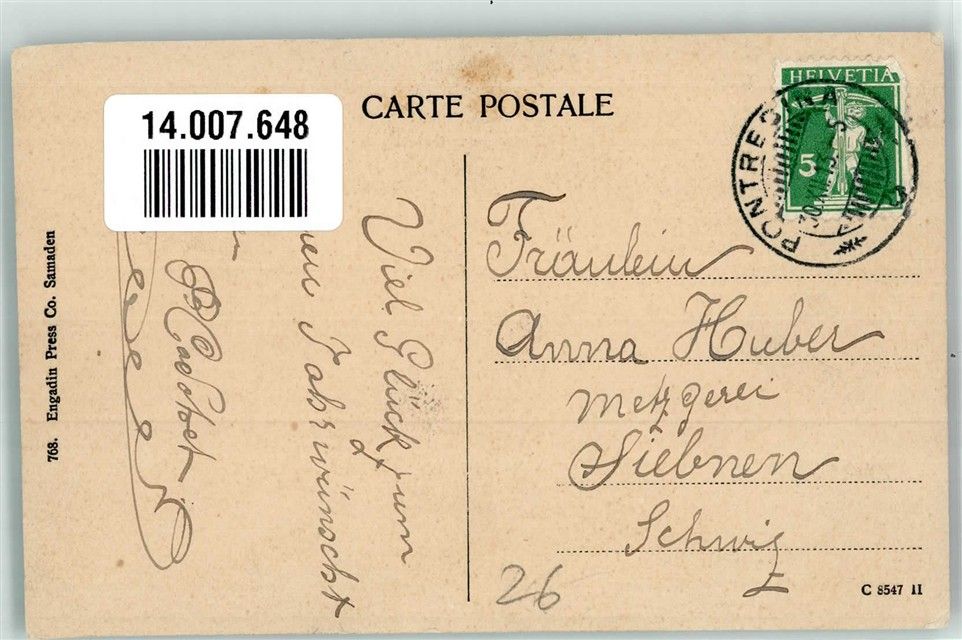 14.007.648
CARTE POSTALE
HELVETIA
5
PONTRESINA
Viel Glück zum
Jahr wünscht
Fräulein
Anna Huber
Metzgerei
Siebnen
Schwiz
26
768. Engadin Press Co. Samaden
C 8547 II